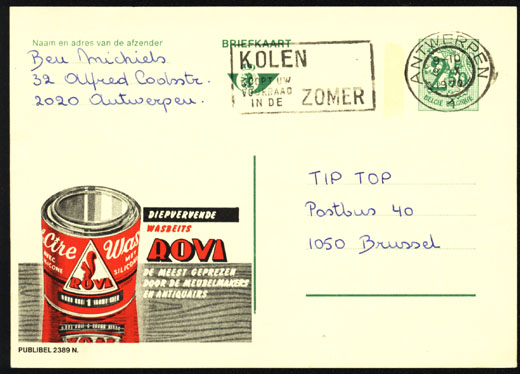 Naam en adres van de afzender
BRIEFKAART
Ben Michiels
32 Alfred Coolsstr.
2020 Antwerpen.
KOLEN
UW
VOORRAAD
IN DE ZOMER
ANTWERPEN
1
BELGIE BELGIQUE
TIP TOP
Postbus 40
1050 Brussel
DIEPVERVENDE
WASBEITS
ROVI
DE MEEST GEPREZEN
DOOR DE MEUBELMAKERS
EN ANTIQUAIRS
Ctre Was
AVEC SILICONE
MET SILICONE
ROVI
PUBLIBEL 2389 N.